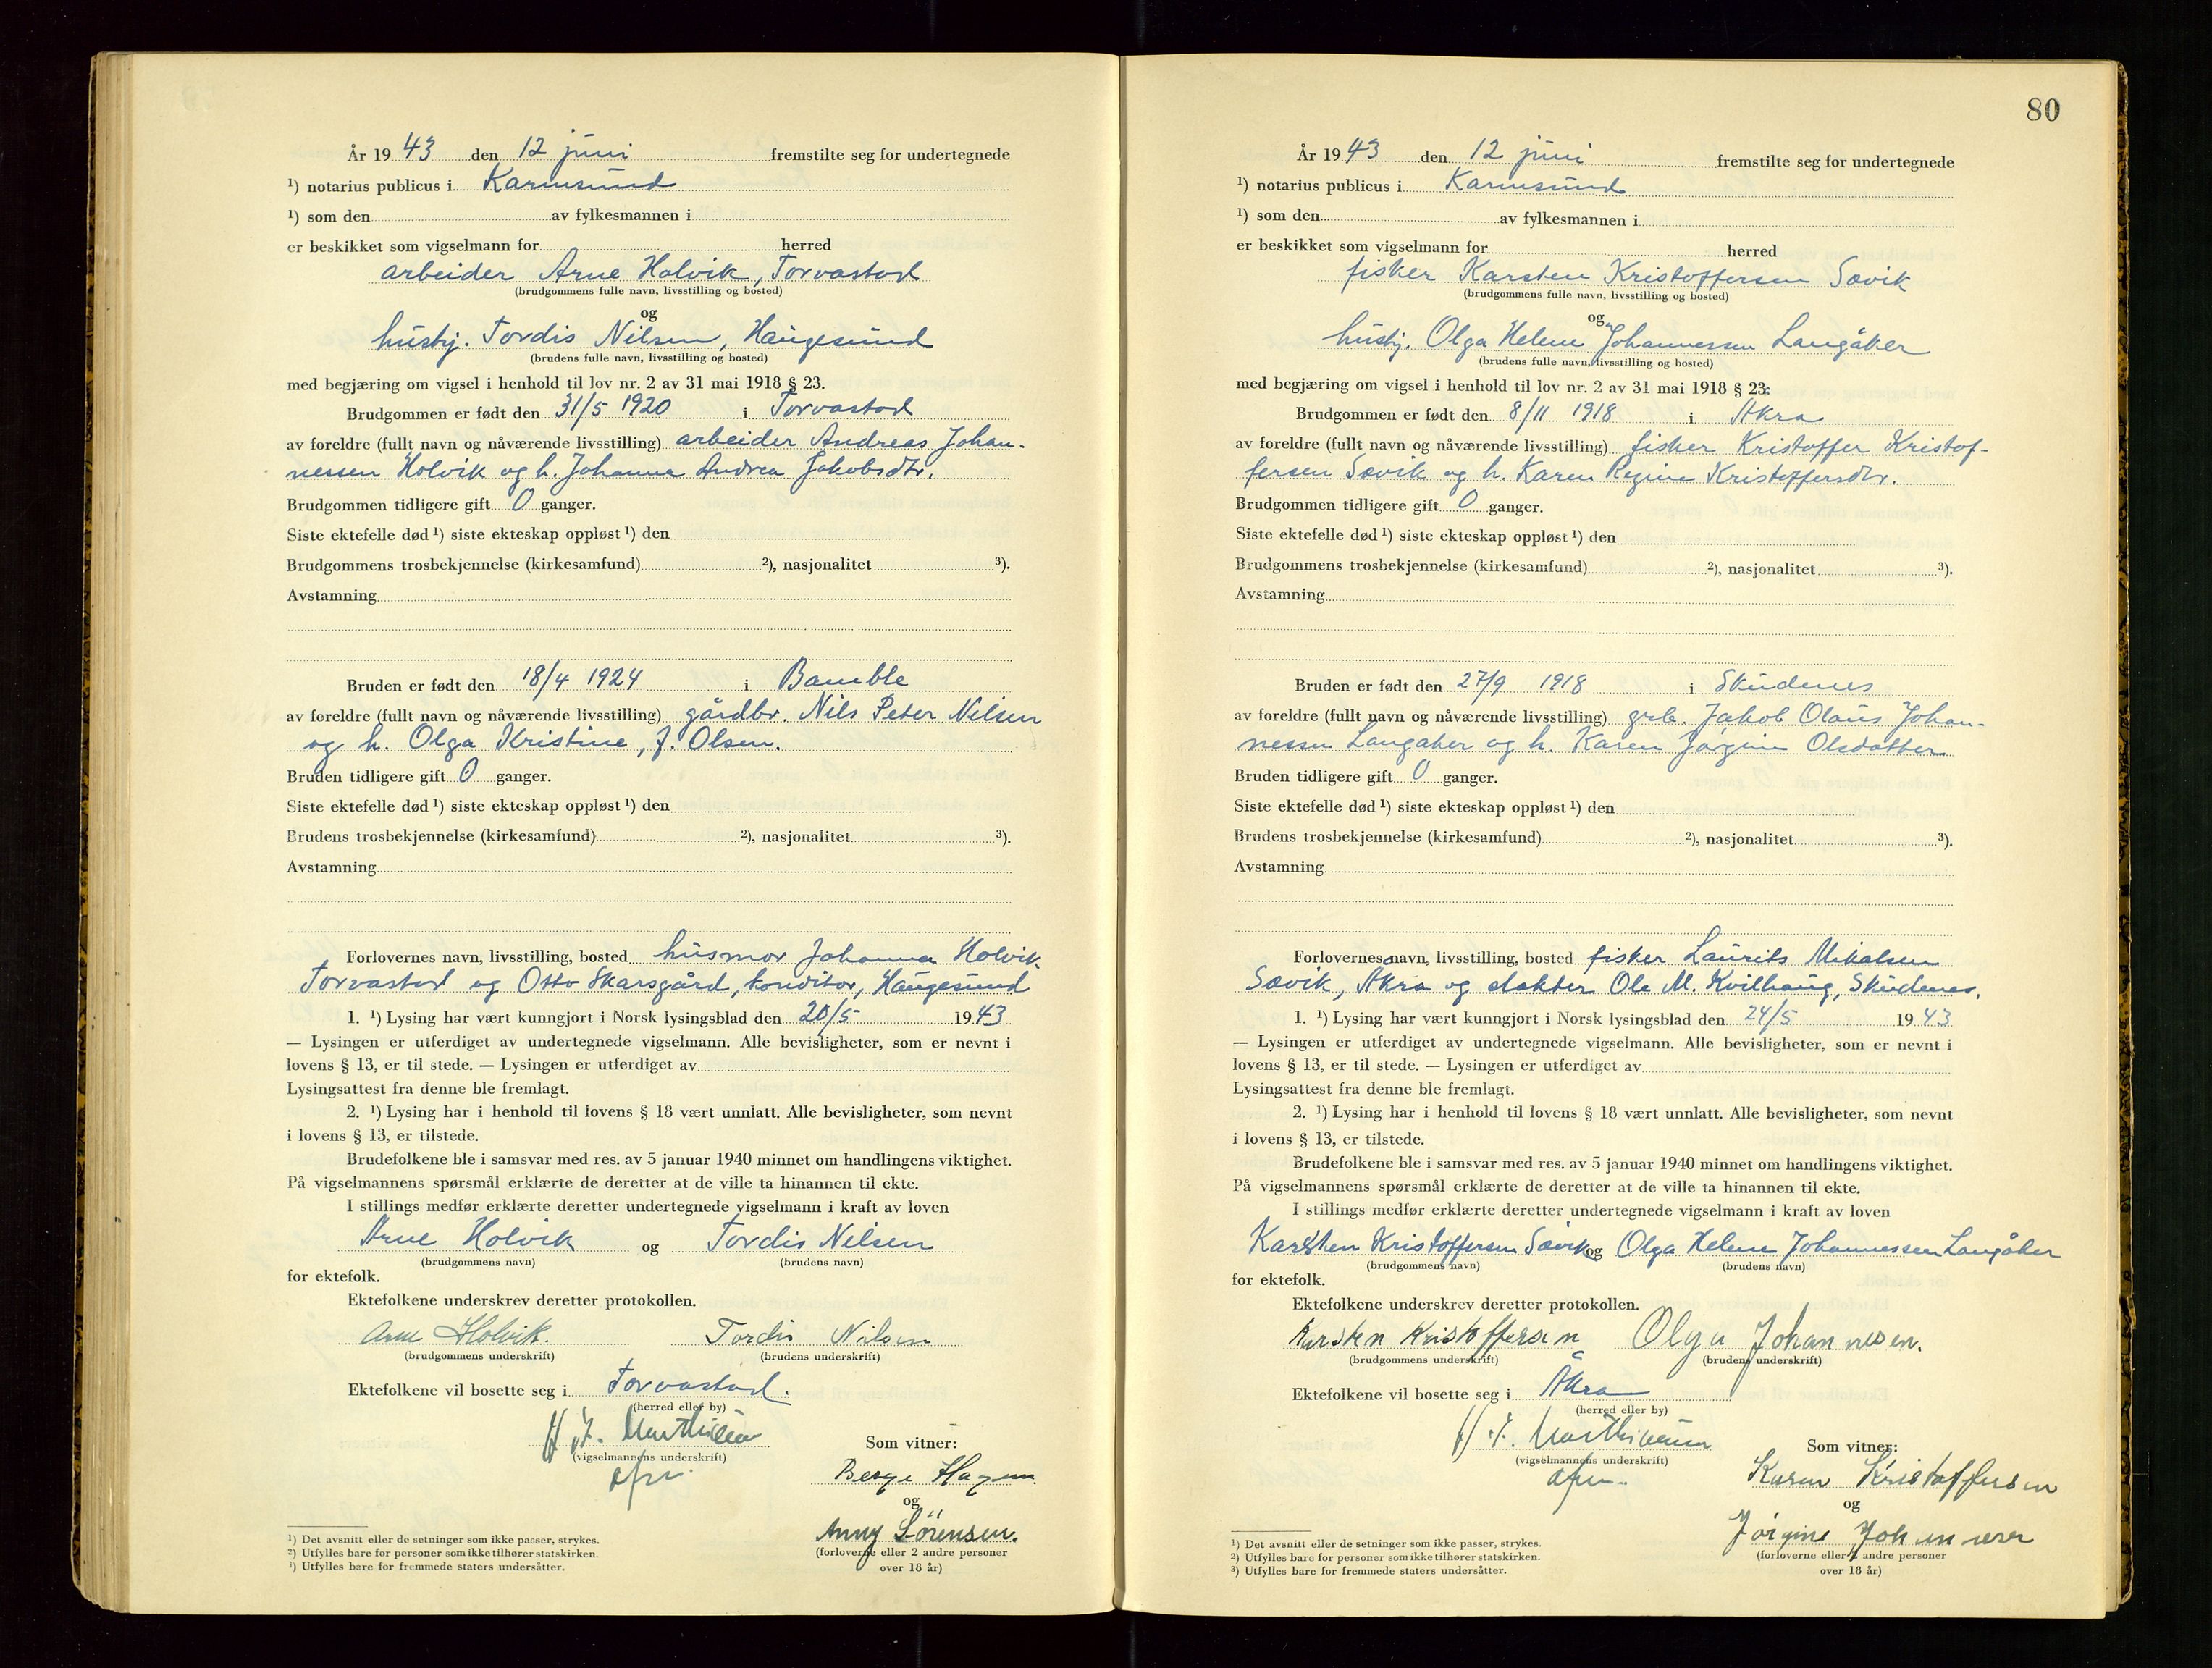 År 1943 den 12 juni fremstilte seg for undertegnede
¹) notarius publicus i Karmsund
¹) som den av fylkesmannen i
er beskikket som vigselmann for herred
arbeider Arne Holvik, Torvastad
(brudgommens fulle navn, livsstilling og bosted)
og
hushj. Tordis Nilsen, Haugesund
(brudens fulle navn, livsstilling og bosted)
med begjæring om vigsel i henhold til lov nr. 2 av 31 mai 1918 § 23.
Brudgommen er født den 31/5 1920 i Torvastad
av foreldre (fullt navn og nåværende livsstilling) arbeider Andreas Johan-
nessen Holvik og h. Johanna Andrea Jakobsdtr.
Brudgommen tidligere gift 0 ganger.
Siste ektefelle død ¹) siste ekteskap oppløst ¹) den
Brudgommens trosbekjennelse (kirkesamfund) ²), nasjonalitet ³).
Avstamning
Bruden er født den 18/4 1924 i Bamble
av foreldre (fullt navn og nåværende livsstilling) gårdbr. Nils Peter Nilsen
og h. Olga Kristine, f. Olsen.
Bruden tidligere gift 0 ganger.
Siste ektefelle død ¹) siste ekteskap oppløst ¹) den
Brudens trosbekjennelse (kirkesamfund) ²), nasjonalitet ³).
Avstamning
Forlovernes navn, livsstilling, bosted husmor Johanna Holvik
Torvastad og Otto Skarsgård, konditor, Haugesund
1. ¹) Lysing har vært kunngjort i Norsk lysingsblad den 20/5 1943
— Lysingen er utferdiget av undertegnede vigselmann. Alle bevisligheter, som er nevnt i
lovens § 13, er til stede. — Lysingen er utferdiget av
Lysingsattest fra denne ble fremlagt.
2. ¹) Lysing har i henhold til lovens § 18 vært unnlatt. Alle bevisligheter, som nevnt
i lovens § 13, er tilstede.
Brudefolkene ble i samsvar med res. av 5 januar 1940 minnet om handlingens viktighet.
På vigselmannens spørsmål erklærte de deretter at de ville ta hinannen til ekte.
I stillings medfør erklærte deretter undertegnede vigselmann i kraft av loven
Arne Holvik og Tordis Nilsen
(brudgommens navn) (brudens navn)
for ektefolk.
Ektefolkene underskrev deretter protokollen.
Arne Holvik. Tordis Nilsen
(brudgommens underskrift) (brudens underskrift)
Ektefolkene vil bosette seg i Torvastad.
(herred eller by)
(vigselmannens underskrift)
Som vitner:
Hagen
og
Anny Sörensen.
(forloverne eller 2 andre personer
over 18 år)
¹) Det avsnitt eller de setninger som ikke passer, strykes.
²) Utfylles bare for personer som ikke tilhører statskirken.
¹) Utfylles bare for fremmede staters undersåtter.
80
År 1943 den 12 juni fremstilte seg for undertegnede
¹) notarius publicus i Karmsund
¹) som den av fylkesmannen i
er beskikket som vigselmann for herred
fisker Karsten Kristoffersen Sævik
(brudgommens fulle navn, livsstilling og bosted)
og
hushj. Olga Helene Johannessen Langåker
(brudens fulle navn, livsstilling og bosted)
med begjæring om vigsel i henhold til lov nr. 2 av 31 mai 1918 § 23.
Brudgommen er født den 8/11 1918 i Akra
av foreldre (fullt navn og nåværende livsstilling) fisker Kristoffer Kristof-
fersen Sævik og h. Karen Regine Kristoffersdtr.
Brudgommen tidligere gift 0 ganger.
Siste ektefelle død ¹) siste ekteskap oppløst ¹) den
Brudgommens trosbekjennelse (kirkesamfund) ²), nasjonalitet ³).
Avstamning
Bruden er født den 27/9 1918 i Skudenes
av foreldre (fullt navn og nåværende livsstilling) grb. Jakob Olaus Johan-
nessen Langaker og h. Karen Jørgine Olsdatter
Bruden tidligere gift 0 ganger.
Siste ektefelle død ¹) siste ekteskap oppløst ¹) den
Brudens trosbekjennelse (kirkesamfund) ²), nasjonalitet ³).
Avstamning
Forlovernes navn, livsstilling, bosted fisker Laurits Mikalsen
Sævik, Akra og slakter Ole M. Kvilhaug, Skudenes.
1. ¹) Lysing har vært kunngjort i Norsk lysingsblad den 24/5 1943
— Lysingen er utferdiget av undertegnede vigselmann. Alle bevisligheter, som er nevnt i
lovens § 13, er til stede. — Lysingen er utferdiget av
Lysingsattest fra denne ble fremlagt.
2. ¹) Lysing har i henhold til lovens § 18 vært unnlatt. Alle bevisligheter, som nevnt
i lovens § 13, er tilstede.
Brudefolkene ble i samsvar med res. av 5 januar 1940 minnet om handlingens viktighet.
På vigselmannens spørsmål erklærte de deretter at de ville ta hinannen til ekte.
I stillings medfør erklærte deretter undertegnede vigselmann i kraft av loven
Karsten Kristoffersen Sævik og Olga Helene Johannessen Langåker
(brudgommens navn) (brudens navn)
for ektefolk.
Ektefolkene underskrev deretter protokollen.
Karsten Kristoffersen Olga Johannesen.
(brudgommens underskrift) (brudens underskrift)
Ektefolkene vil bosette seg i Åkra
(herred eller by)
(vigselmannens underskrift)
Som vitner:
Karen Kristoffersen
og
Jørgine Johannesen
(forloverne eller 2 andre personer
over 18 år)
¹) Det avsnitt eller de setninger som ikke passer, strykes.
²) Utfylles bare for personer som ikke tilhører statskirken.
³) Utfylles bare for fremmede staters undersåtter.